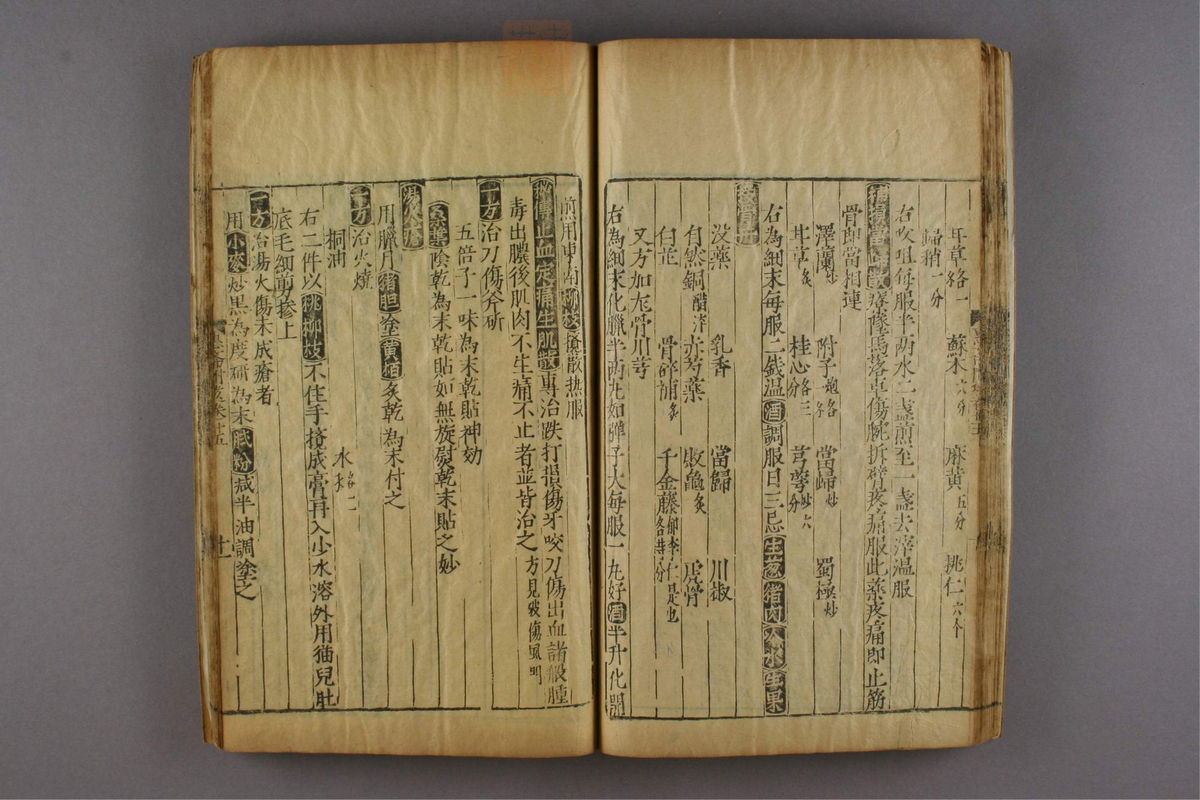 甘草各一 蘇木六分 麻黄五分 桃仁六个
歸稍一分
右㕮咀每服半两水二盞煎至一盞去滓温服
補損當歸散療墜馬落車傷腕折臂疼痛服此藥疼痛即止筋
骨即當相連
澤蘭炒 附子炮各 當歸炒 蜀極炒
甘草炙 桂心各三分 芎藭炒六分
右為細末每服二銭温酒調服日三忌生葱猪肉冷水生果
接骨丹
没藥 乳香 當歸 川椒
自然銅醋淬 赤芍藥 敗龜炙 虎骨
白芷 骨碎補炙 千金藤郁李仁是也各等分
又方加龙骨川芎
右為細末化臘半两丸如弹子大每服一丸好酒半升化開
煎用東南柳枝攪散热服
秘傳止血定痛生肌散專治跌打損傷牙咬刀傷出血諸般腫
毒出膿後肌肉不生痛不止者並皆治之方見破傷風門
一方治刀傷斧斫
五倍子一味為末乾貼神効
陰乾為末乾貼如無旋熨乾末貼之妙
湯火瘡
用臘月猪胆塗黄栢炙乾為末付之
一方治火燒
桐油 水各二
右二件以桃柳枝不住手攪成膏再入少水溶外用猫兒肚
底毛細剪掺上
一方治湯火傷未成瘡者
用小麥炒黒為度研為末膩粉减半油調塗之
十一